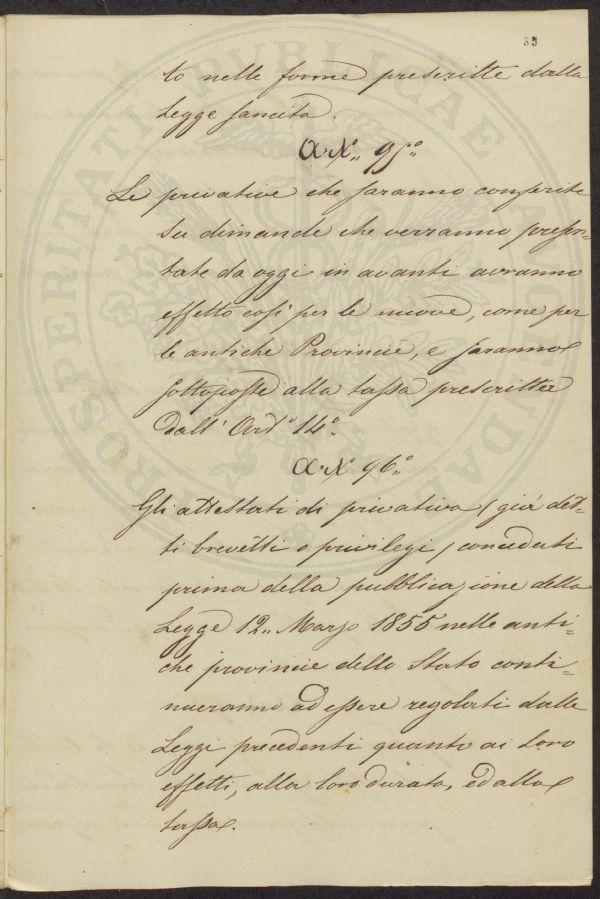 33
to nelle forme prescritte dalla
Legge sancita.
Art.° 95.°
Le privative che saranno conferite
su dimande che verranno presen=
tate da oggi in avanti avranno
effetto così per le nuove, come per
le antiche Provincie, e saranno
sottoposte alla tassa prescritta
dall' Art.° 14.°
Art.° 96.°
Gli attestati di privativa / già det=
ti brevetti o privilegi / conceduti
prima della pubblicazione della
Legge 12,, Marzo 1855 nelle anti=
che provincie dello Stato conti=
nueranno ad essere regolati dalle
Leggi precedenti quanto ai loro
effetti, alla loro durata, ed alla
tassa.
PROSPERITATI PUBLICAE AUGENDAE